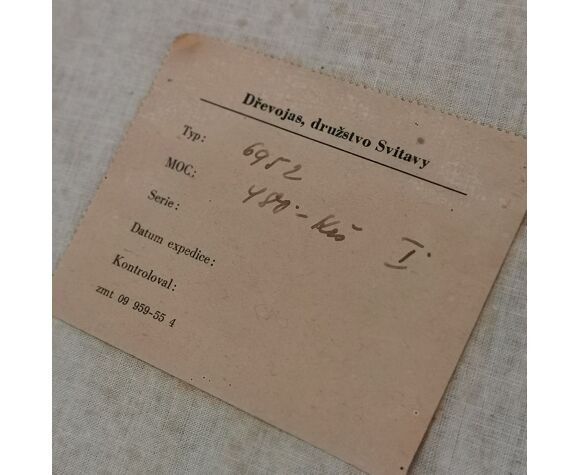 Dřevojas, družstvo Svitavy
Typ: 6952
MOC: 480.- Kčs I.
Serie:
Datum expedice:
Kontroloval:
zmt 09 959-55 4